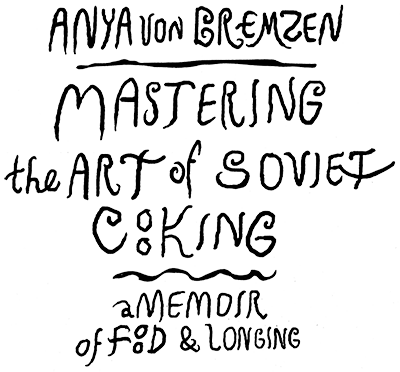 ANYA VON BREMZEN
MASTERING
the ART of SOVIET
COOKING
a MEMOIR
of FOOD & LONGING